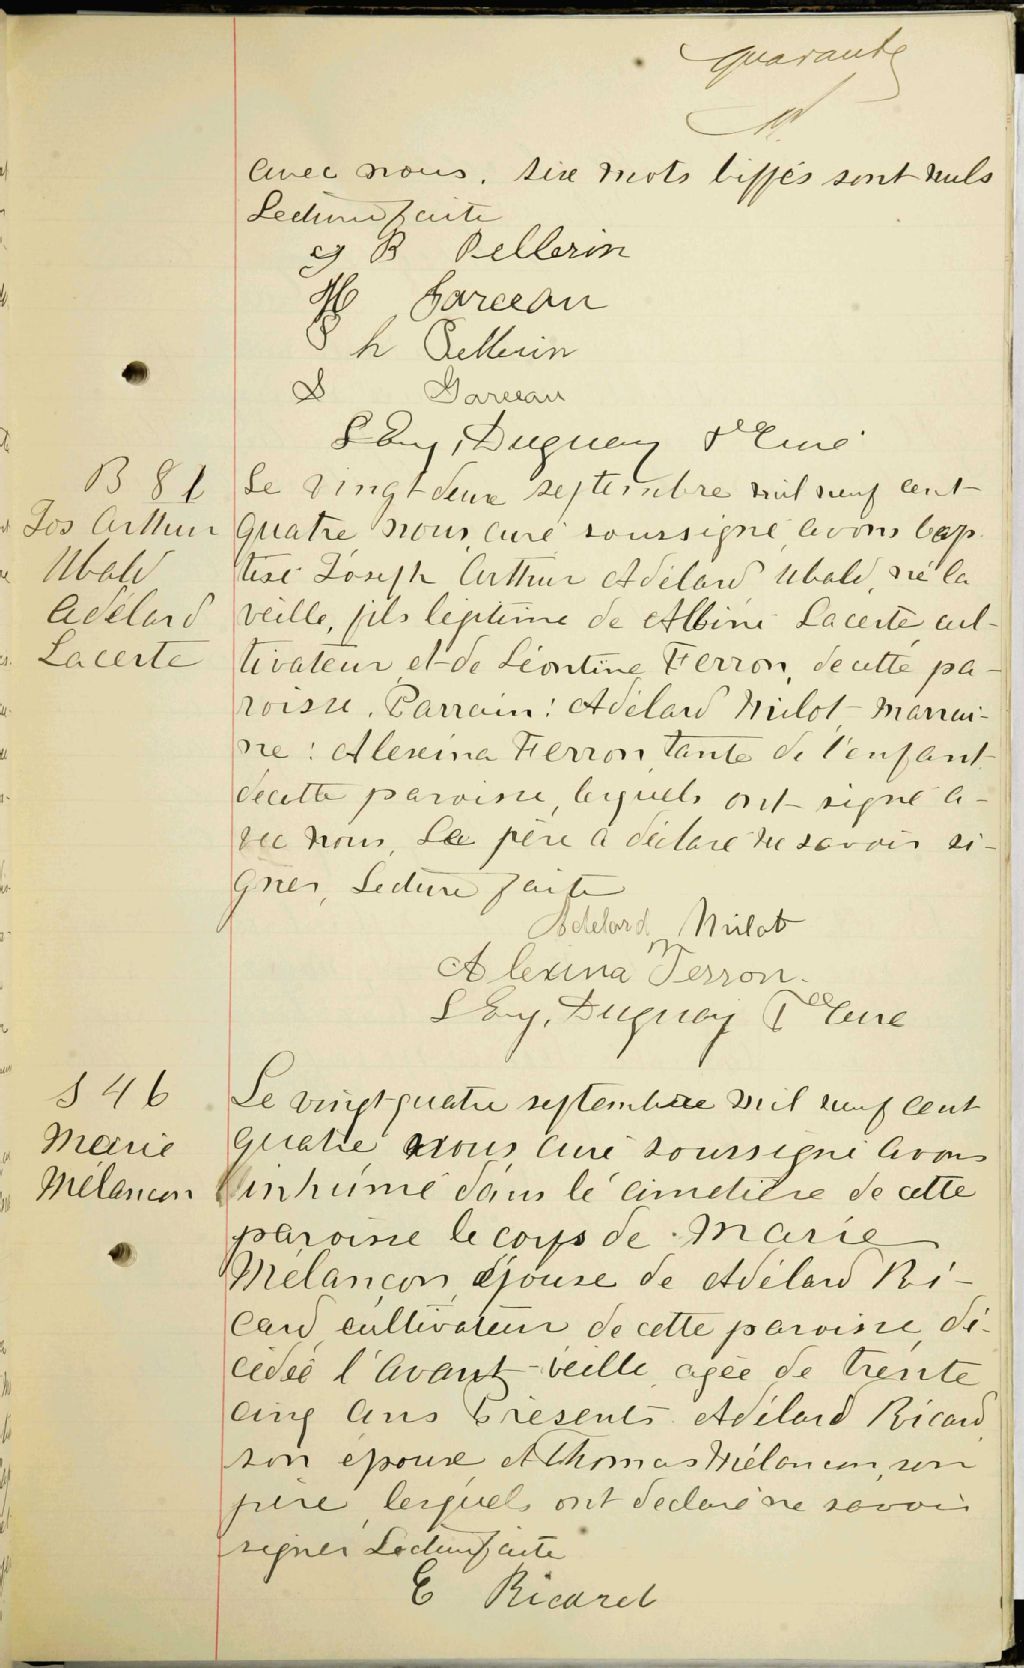 quarante
avec nous. six mots biffés sont nuls
Lecture faite
J B Pellerin
H Garceau
h Pellerin
S Garceau
L Eug. Duguay Ptre Curé
B 81
Jos Arthur
Ubald
Adélard
Lacerte
Le vingt-deux septembre mil neuf cent
quatre nous, curé soussigné, avons bap-
tisé Joseph Arthur Adélard Ubald, né la
veille, fils légitime de Albini Lacerte cul-
tivateur et de Léontine Ferron, de cette pa-
roisse. Parrain: Adélard Milot, marrai-
ne: Alexina Ferron, tante de l'enfant
de cette paroisse, lesquels ont signé a-
vec nous, Le père a déclaré ne savoir si-
gner, Lecture faite
Adelard Milot
Alexina Ferron.
L Eug. Duguay Ptre Curé
S 46
Marie
Mélancon
Le vingt-quatre septembre mil neuf cent
quatre nous curé soussigné avons
inhumé dans le cimetière de cette
paroisse le corps de Marie
Mélançon, épouse de Adélard Ri-
card, cultivateur de cette paroisse, dé-
cédée l'avant-veille, agée de trente
cinq ans Présents Adélard Ricard,
son épouse et Thomas Mélancon, son
père, lesquels ont declaré ne savoir
signer Lecture faite
E Ricard